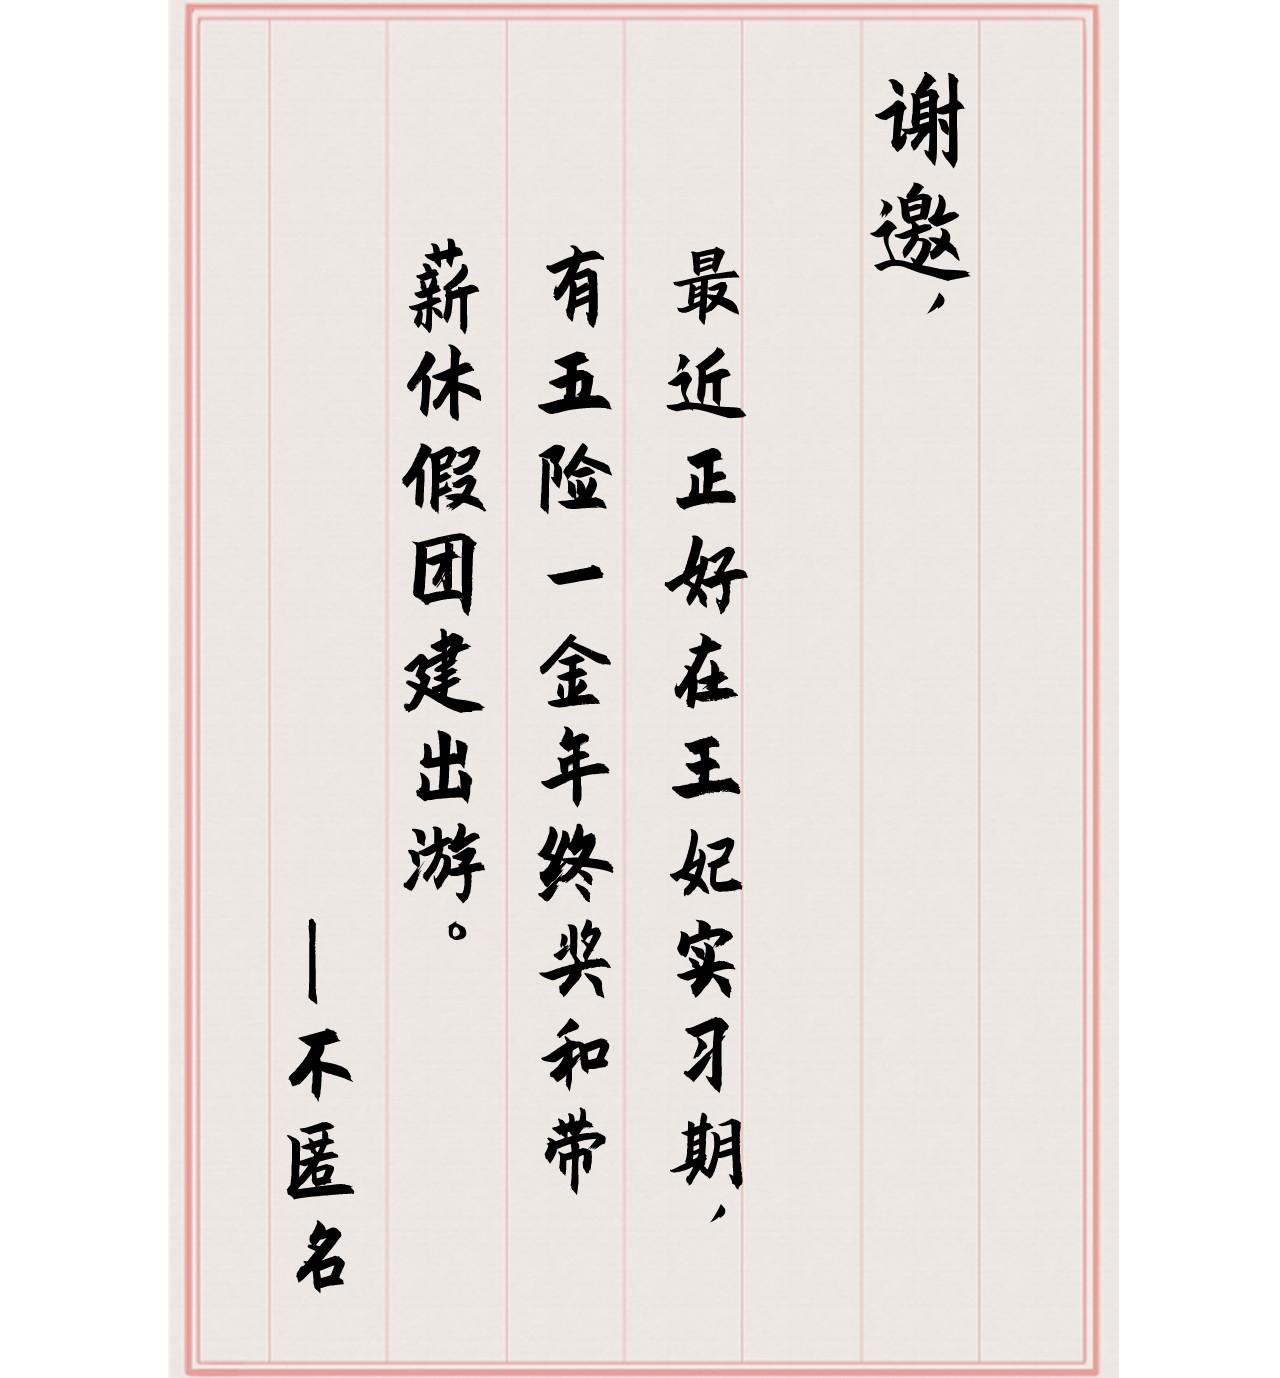 谢邀，
最近正好在王妃实习期，
有五险一金年终奖和带
薪休假团建出游。
—不匿名